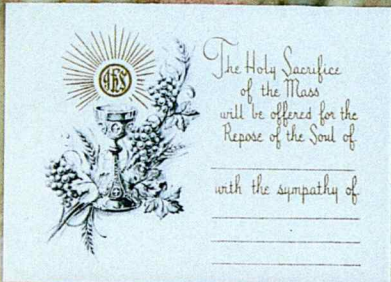 IHS
The Holy Sacrifice
of the Mass
will be offered for the
Repose of the Soul of
with the sympathy of